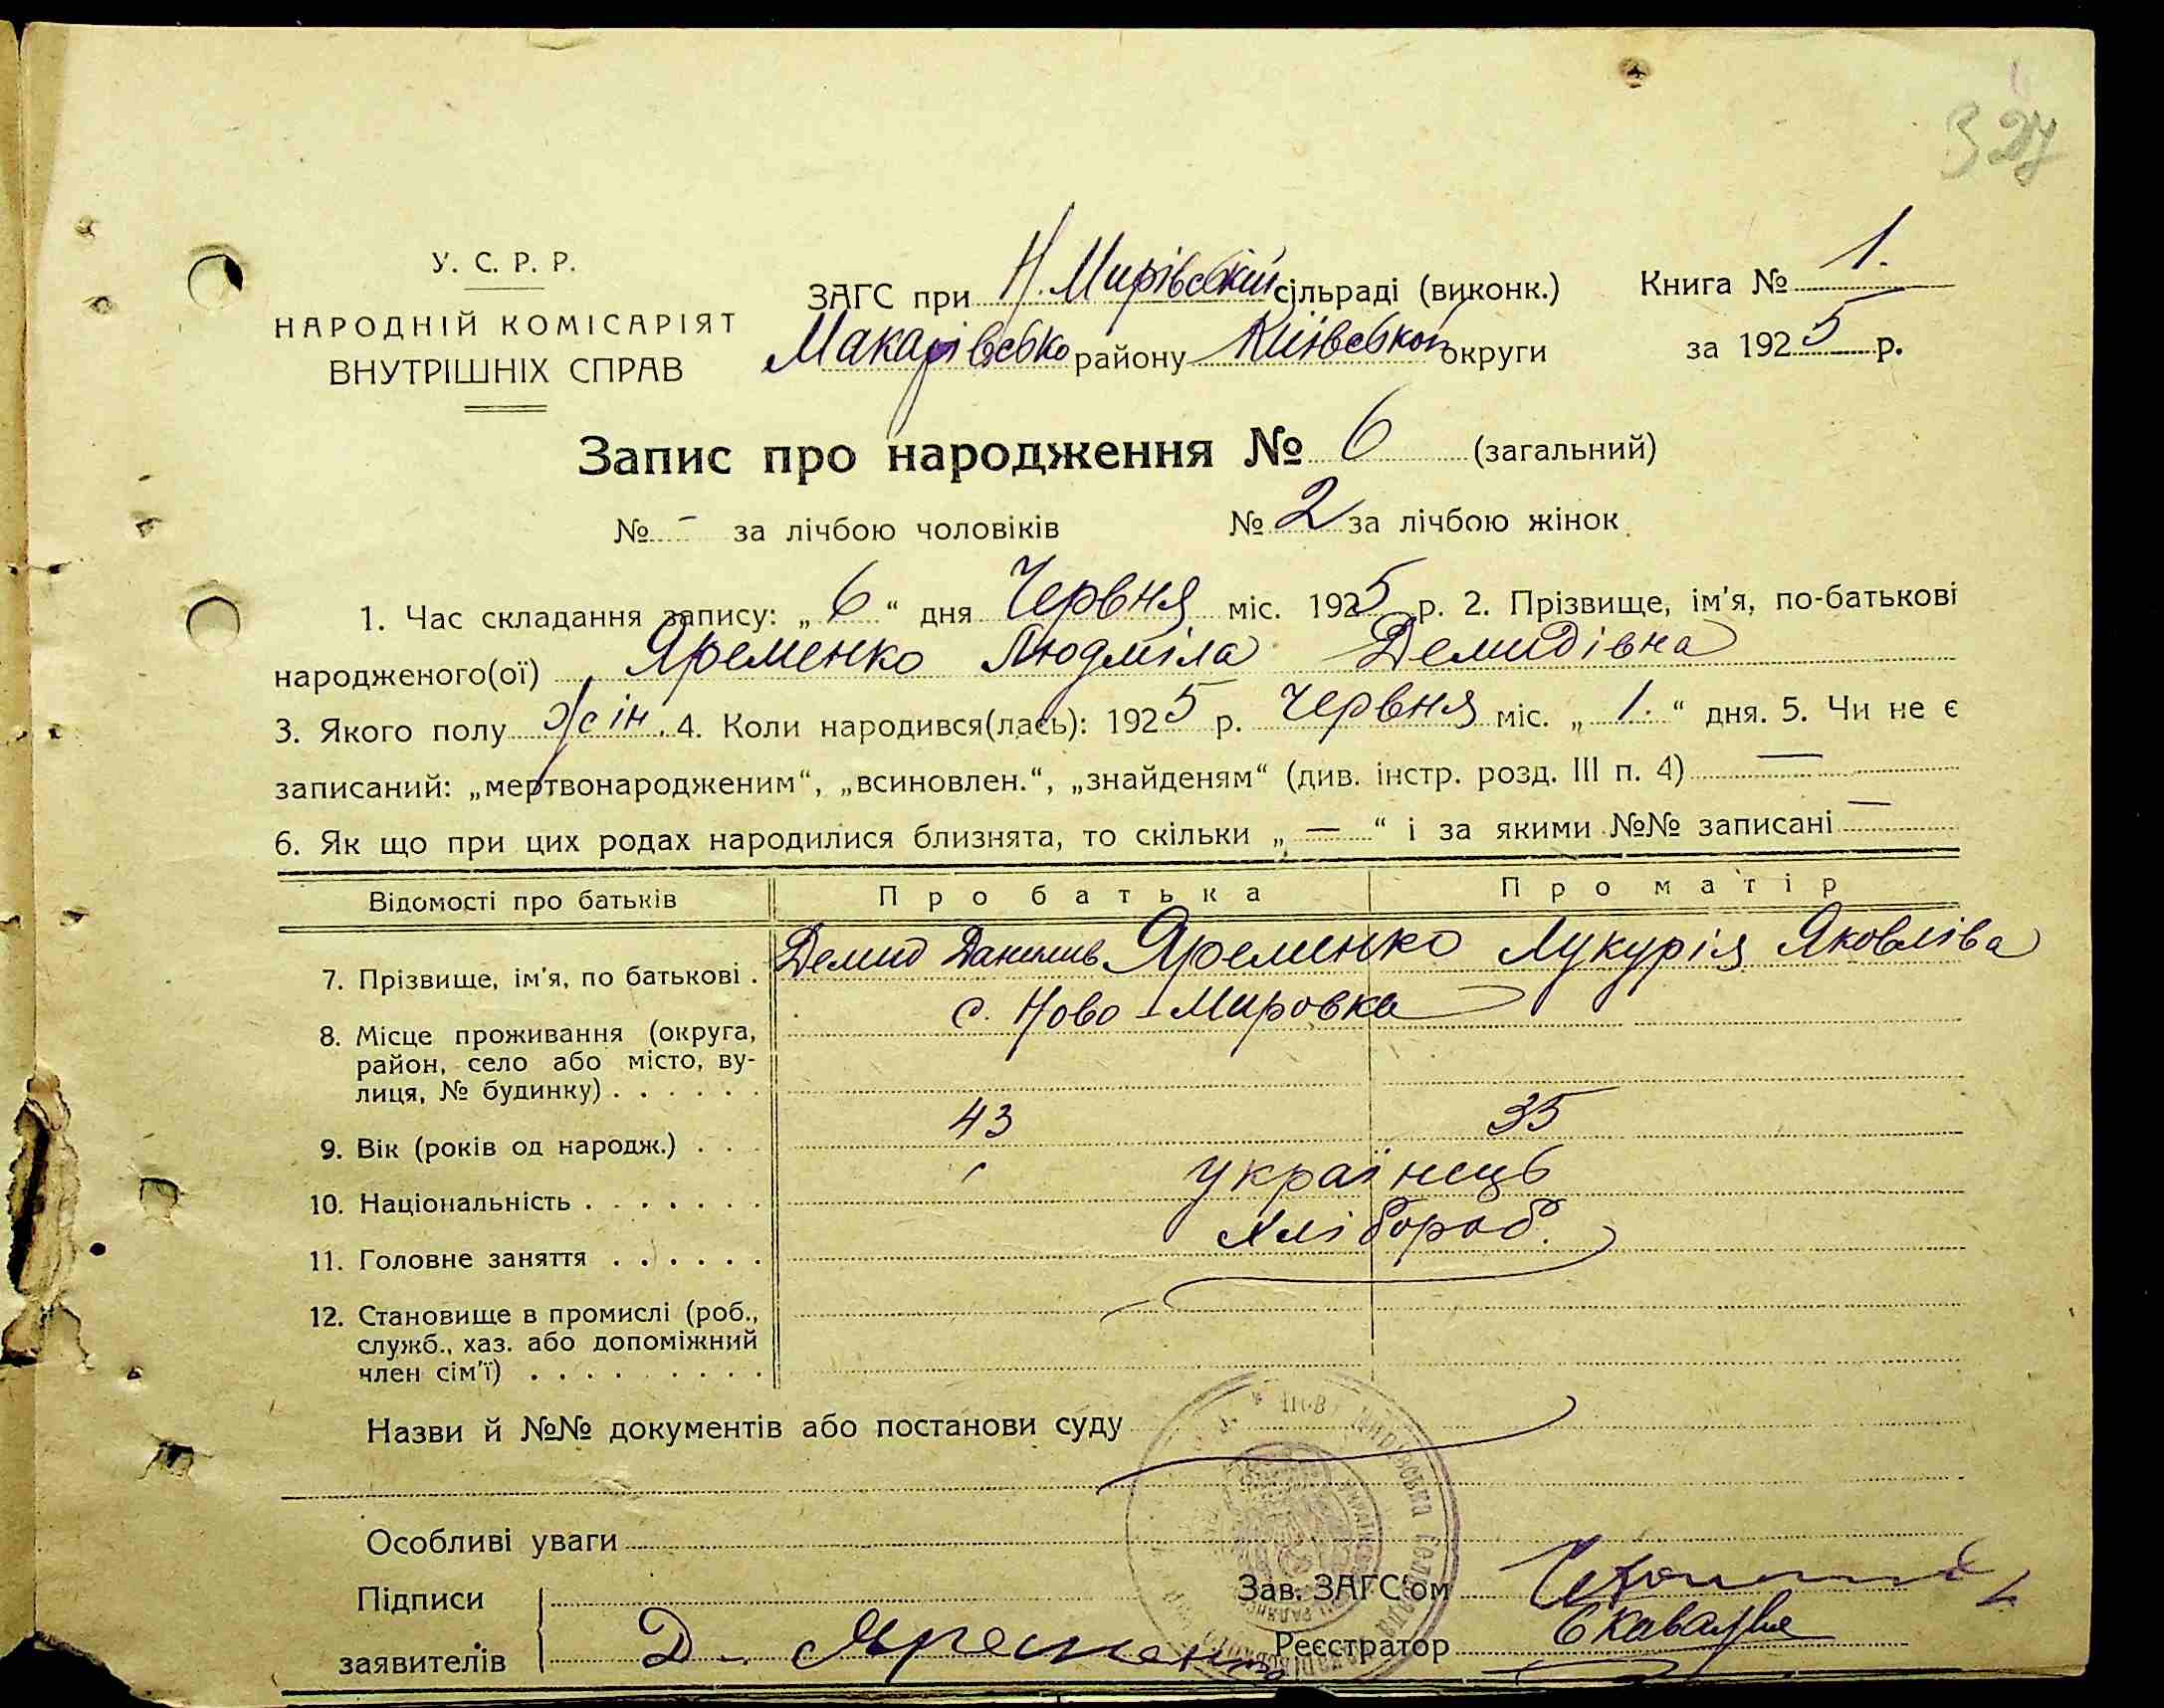 327
У. С. Р. Р.
НАРОДНІЙ КОМІСАРІЯТ
ВНУТРІШНІХ СПРАВ
ЗАГС при Н. Мирівській сільраді (виконк.)
Макарівсько району Київської округи
Книга № 1.
за 1925 р.
Запис про народження № 6 (загальний)
№ - за лічбою чоловіків № 2 за лічбою жінок
1. Час складання запису: „6“ дня Червня міс. 1925 р. 2. Прізвище, ім'я, по-батькові
народженого(ої) Яременко Людміла Демидівна
3. Якого полу жін. 4. Коли народився(лась): 1925 р. Червня міс. „1.“ дня. 5. Чи не є
записаний: „мертвонародженим“, „всиновлен.“, „знайденям“ (див. інстр. розд. III п. 4) —
6. Як що при цих родах народилися близнята, то скільки „—“ і за якими №№ записані —
Відомості про батьків Про батька Про матір
7. Прізвище, ім'я, по батькові . Демид Данилів Яременко Лукурія Яковліва
8. Місце проживання (округа,
район, село або місто, ву-
лиця, № будинку) . . . . . .
с. Ново-Мировка
9. Вік (років од народж.) . . . 43 35
10. Національність . . . . . . . українець
11. Головне заняття . . . . . . Хлібороб.
12. Становище в промислі (роб.,
служб., хаз. або допоміжний
член сім'ї) . . . . . . . . .
Назви й №№ документів або постанови суду
Особливі уваги
Підписи
заявителів
Д. Яременко
Зав. ЗАГС'ом
Реєстратор